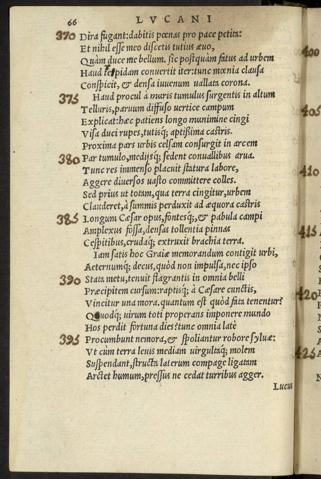 66 LVCANI
370 Dira fugant: dabitis pœnas pro pace petita:
Et nihil esse meo discetis tutius æuo,
Quàm duce me bellum. sic postquàm fatus ad urbem
Haud trepidam conuertit iter: tunc mœnia clausa
Conspicit, & densa iuuenum uallata corona.
375 Haud procul à muris tumulus surgentis in altum
Telluris, paruum diffuso uertice campum
Explicat: hæc patiens longo munimine cingi
Visa duci rupes, tutisq; aptissima castris.
Proxima pars urbis celsam consurgit in arcem
380 Par tumulo, medijsq; sedent conuallibus arua.
Tunc res immenso placuit statura labore,
Aggere diuersos uasto committere colles.
Sed prius ut totam, qua terra cingitur, urbem
Clauderet, à summis perduxit ad æquora castris
385 Longum Cæsar opus, fontesq;, & pabula campi
Amplexus fossa, densas tollentia pinnas
Cespitibus, crudaq; extruxit brachia terra.
Iam satis hoc Graiæ memorandum contigit urbi,
Aeternumq; decus, quòd non impulsa, nec ipso
390 Strata metu, tenuit flagrantis in omnia belli
Præcipitem cursum: raptisq; à Cæsare cunctis,
Vincitur una mora. quantum est quòd fata tenentur?
Quodq; uirum toti properans imponere mundo
Hos perdit fortuna dies? tunc omnia latè
395 Procumbunt nemora, & spoliantur robore syluæ:
Vt cùm terra leuis mediam uirgultaq; molem
Suspendant, structa laterum compage ligatam
Arctet humum, pressus ne cedat turribus agger.
Lucus
400
405
410
415
420
425